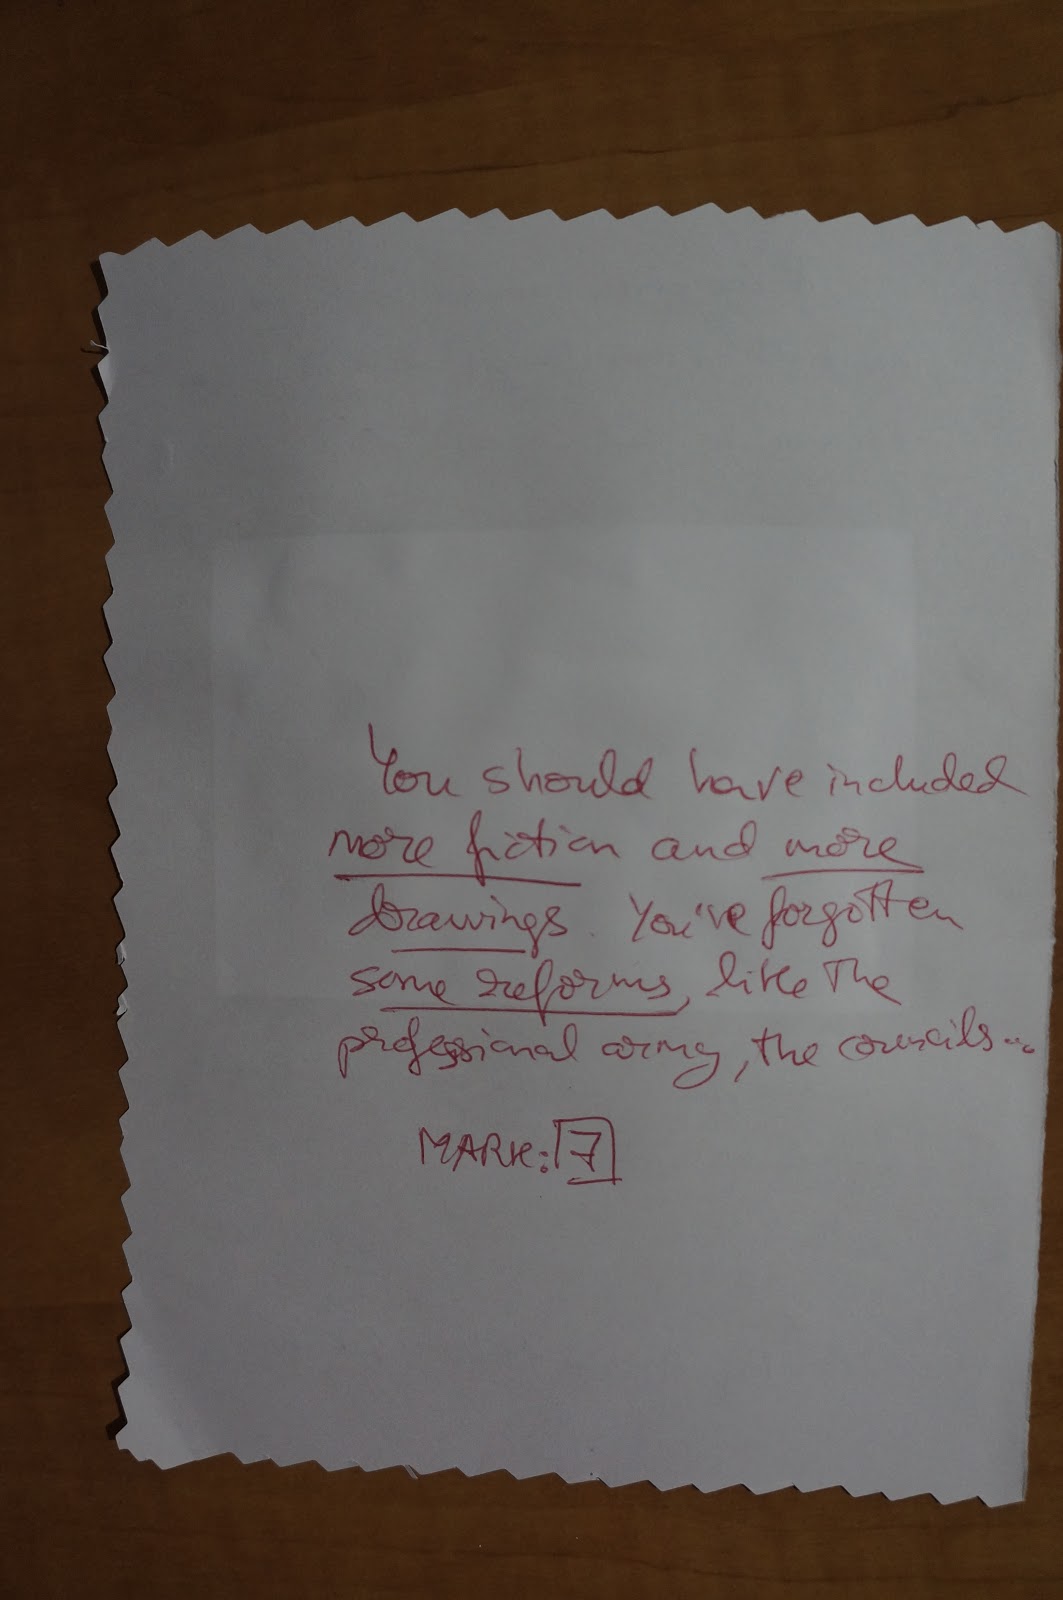 You should have included
more fiction and more
drawings. You've forgotten
some reforms, like the
professional army, the councils...
MARK: 7